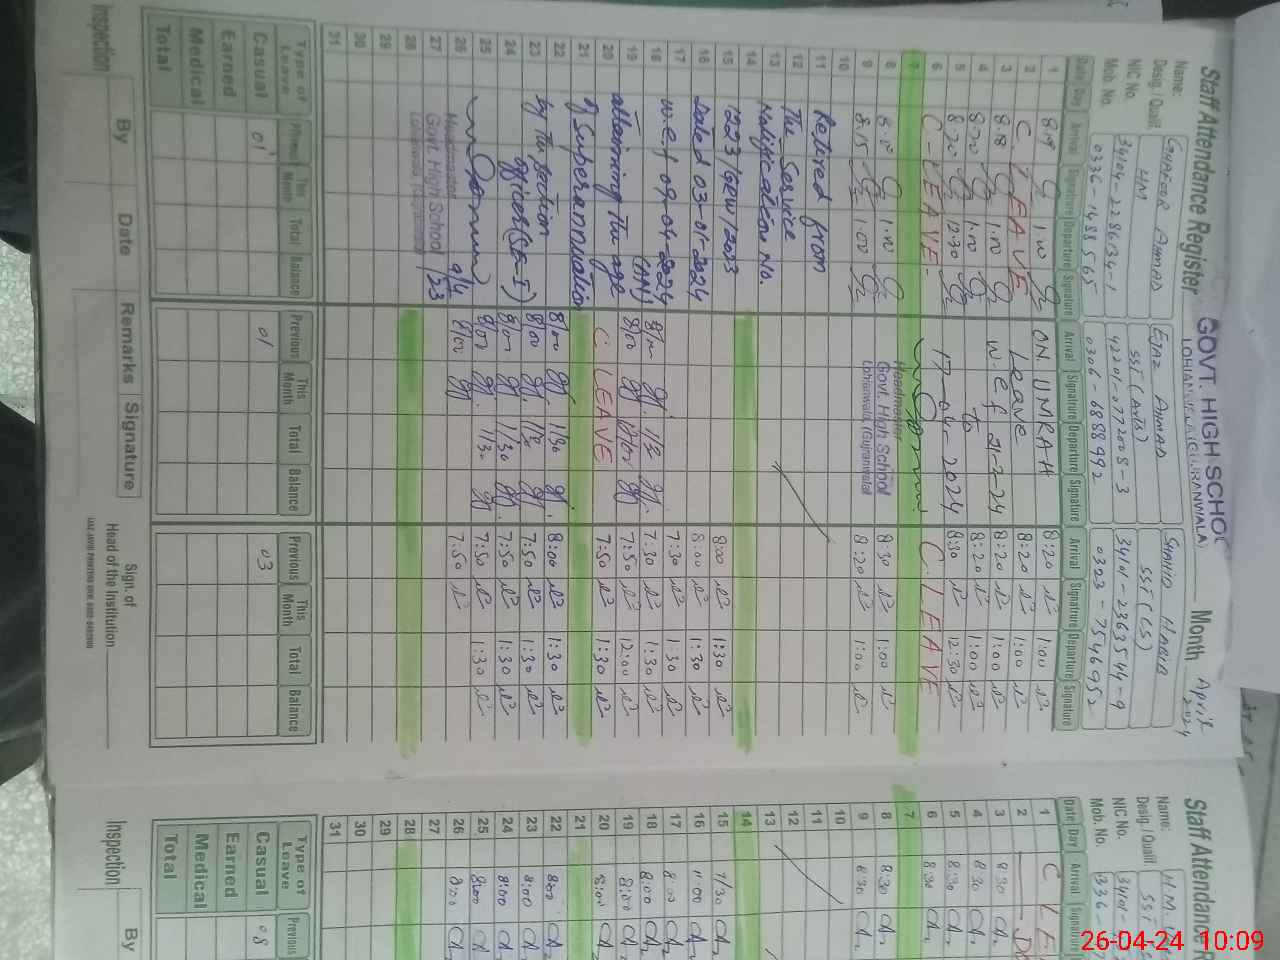 Staff Attendance Register GOVT. HIGH SCHOOL Month April 2024
LOHIANWALA (GUJRANWALA)
Name: GHAFOR AHMAD EJAZ AHMAD SHAHID HABIB
Desig./Qualif. HM SST (Arts) SST (CS)
NIC No. 34104-2286134-1 42201-0772008-3 34101-2363544-9
Mob. No. 0336-1488565 0306-6888992 0323-7546952
Date/Day Arrival Signature Departure Signature Arrival Signature Departure Signature Arrival Signature Departure Signature
1 8.19 1.00 ON. UMRAH 8:20 1:00
2 C. LEAVE Leave 8:20 1:00
3 8.18 1.00 w.e.f 21-2-24 8:20 1:00
4 8.20 1.00 to 8:20 1:00
5 8.20 12.30 17-04-2024 8:30 12:30
6 C-LEAVE- C. LEAVE
7 Headmaster
8 8.20 1.00 Govt. High School 8:30 1:00
9 8.15 1.00 Lohianwala, (Gujranwala) 8:20 1:00
10
11 Retired from
12 The Service
13 Notification No.
14
15 1223/GRW/2023 8:00 1:30
16 Dated 03-01-2024 8:00 1:30
17 w.e.f 09-04-2024 7:30 1:30
18 (AN) 7:30 1:30
19 attaining the age 8/00 12/00 7:50 12:00
20 C. LEAVE 7:50 1:30
21 of Superannuation
22 8/00 1/30 8:00 1:30
23 by the Section 8/00 7:50 1:30
24 officer (SE-I) 8/00 1/30 7:50 1:30
25 8/00 1/30 7:50 1:30
26 8/00 7:50
27 Headmaster
Govt. High School
Lohianwala (Gujranwala)
28
29
30
31
Type of Leave Previous This Month Total Balance Previous This Month Total Balance Previous This Month Total Balance
Casual 01 01 03
Earned
Medical
Total
Inspection By Date Remarks Signature Sign. of
Head of the Institution
Staff Attendance R
Name: H.M.
Desig./Qualif. SST
NIC No. 34101-
Mob. No. 0336-
Date/Day Arrival Signature
1 C LE
2
3 8:30
4 8:30
5 8:30
6 8:30
7
8 8:30
9 8:30
10
11
12
13
14
15 7/30
16 11:00
17 8:00
18 8:00
19 8:00
20 8:00
21
22 8:00
23 8:00
24 8:00
25 8:00
26 8:00
27
28
29
30
31
Type of Leave Previous
Casual 08
Earned
Medical
Total
Inspection By
26-04-24 10:09